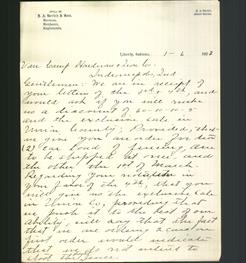 OFFICE OF
Liberty, Indiana, 1-6
Van Camp Hardware & Iron Co.
Indianapolis, Ind
Gentlemen: We are in receipt of
your letters of the 3rd & 4th, and
would ask if you will make
us a discount of
and the exclusive sale in
Union County; Provided, that
we give you an order for two
(2) car load of fencing, one
to be shipped at once, and
the other the 1st of March.
Regarding your
in
your favor of the 4th, that you
will give us the exclusive sale
in Union Co, providing that
we push it to the best of our
ability, will say that the fact
that we are ordering 2 cars on
first order would indicate
that we do not intend to
the fence.